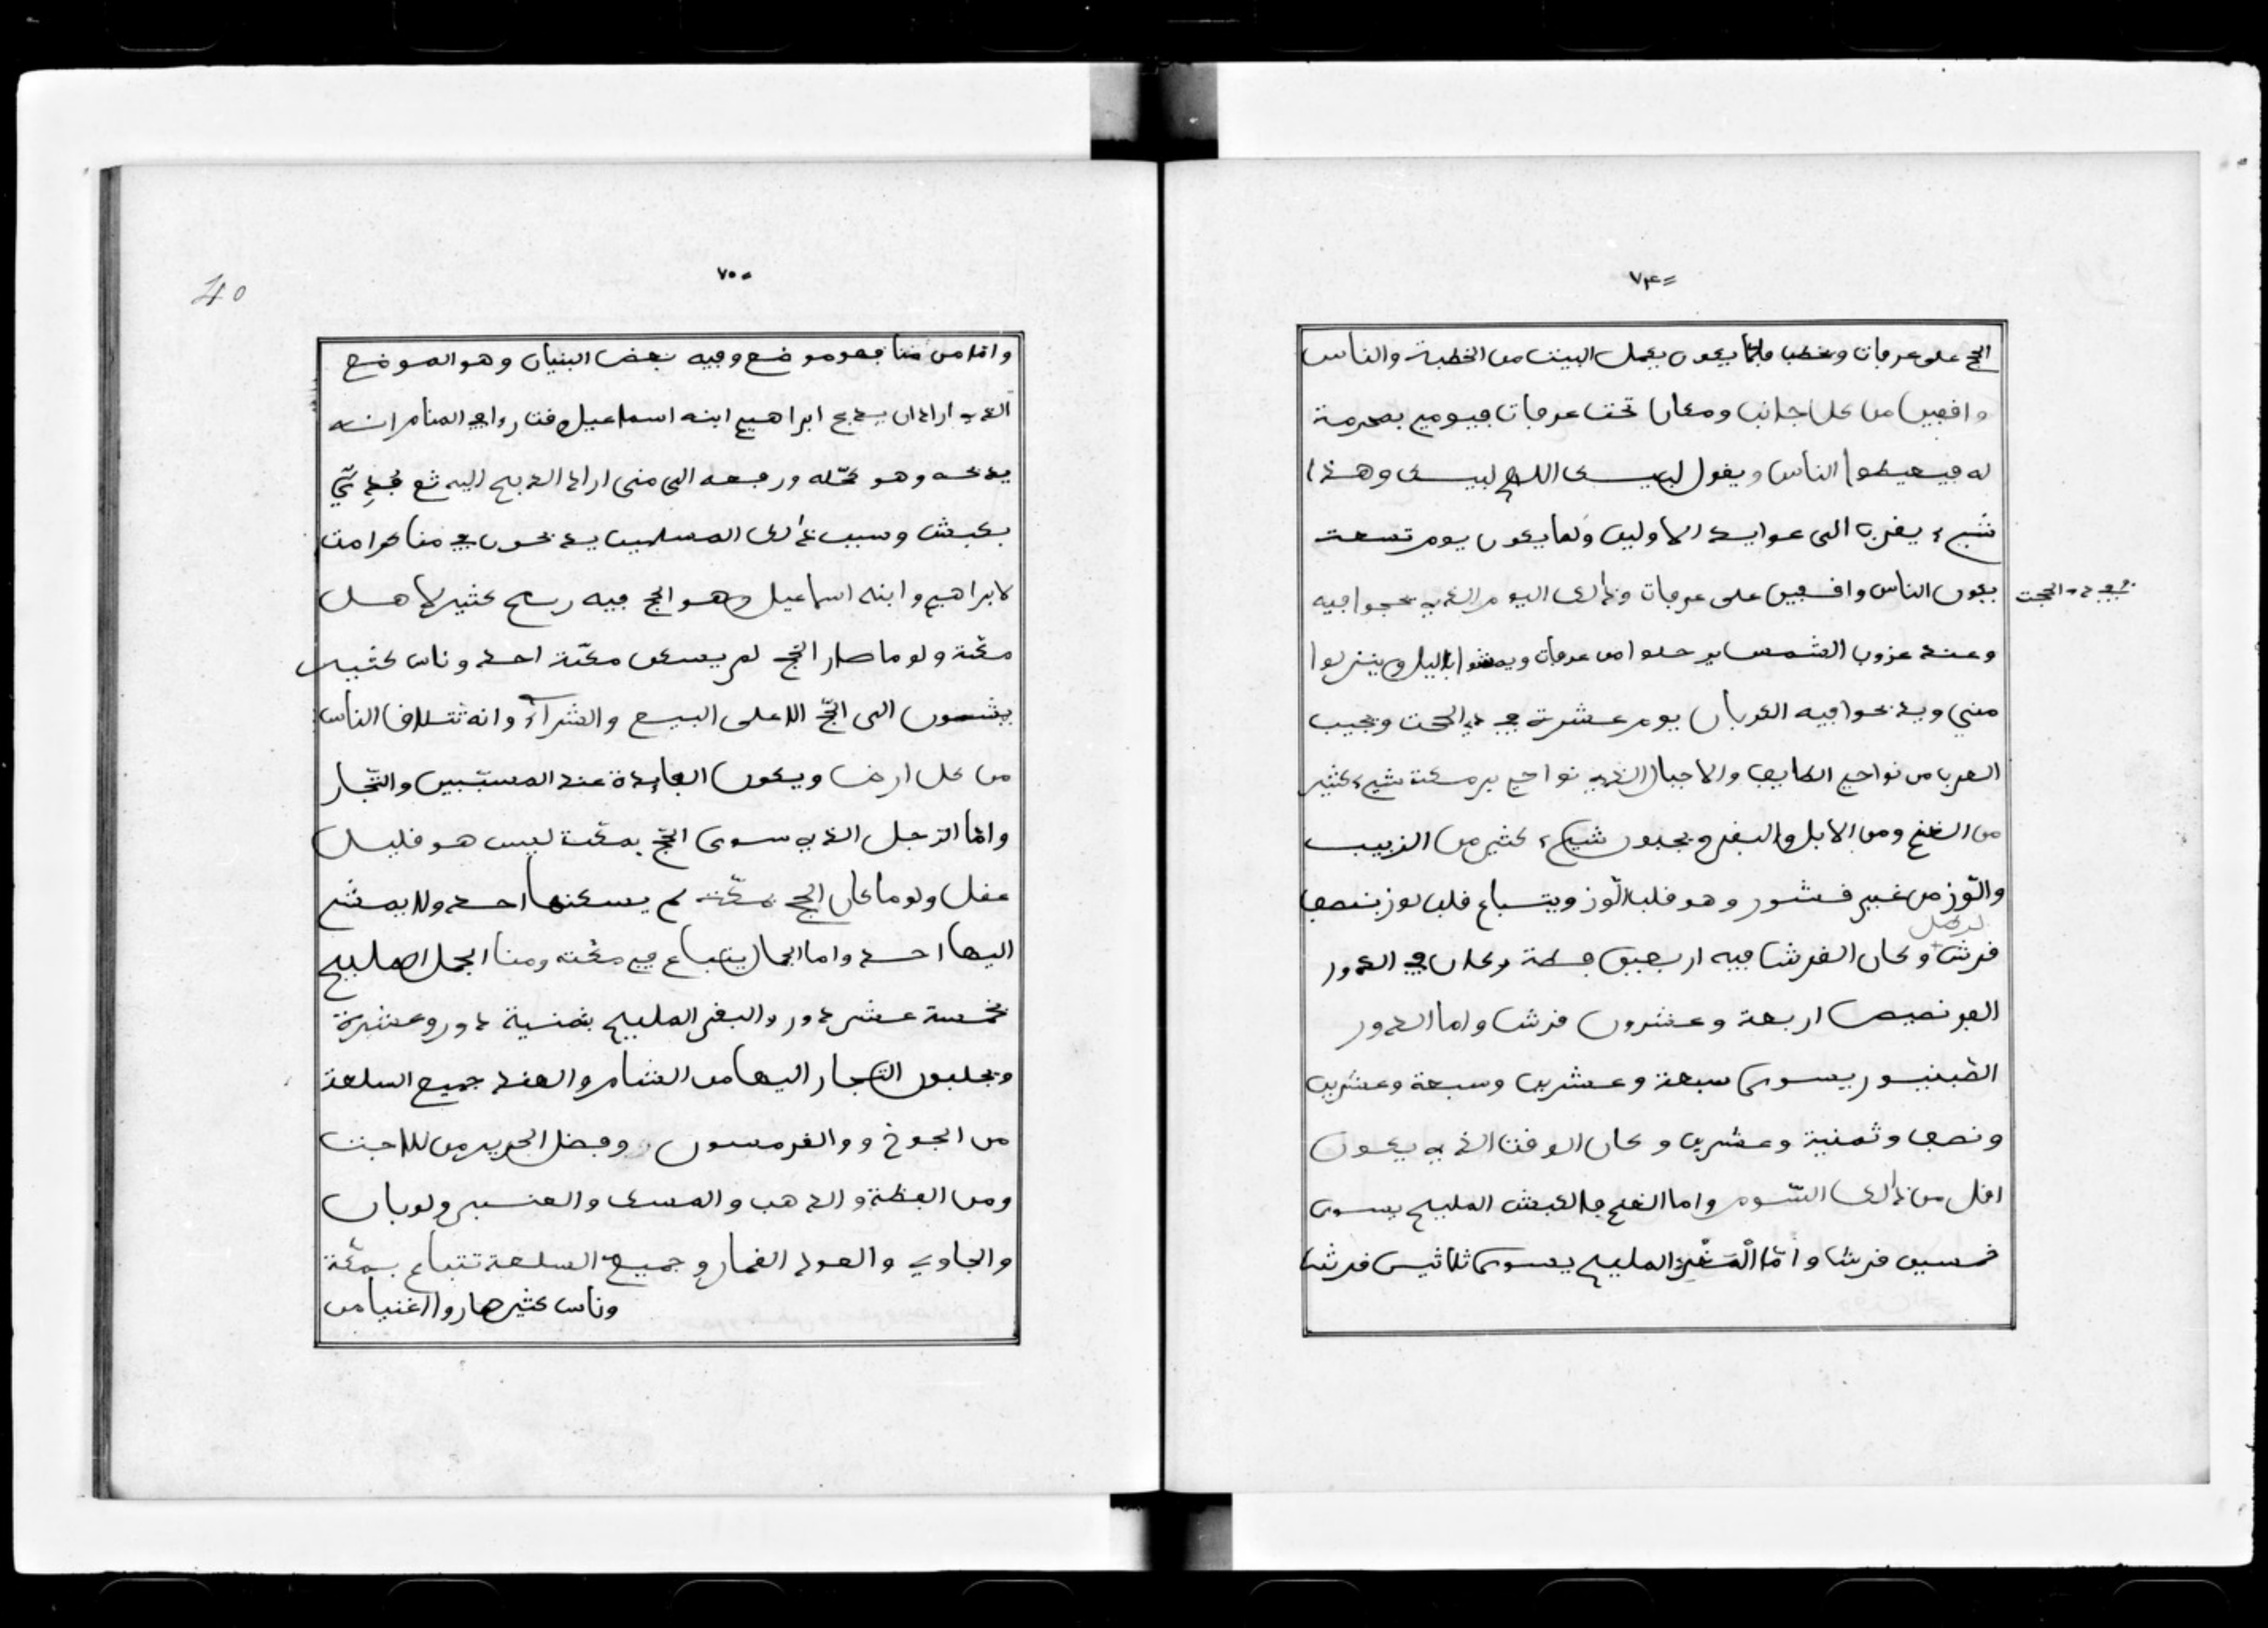 ٧٤
الحج على عرفات وخطب فلما يكون يكمل البيت من الخطبة والناس
واقفين من كل جانب ومكان تحت عرفات فيوميء بمحرمة
له فيعيطوا الناس ويقول لبيك اللهم لبيك وهذا
شيء يقرب الى عوايد الاولين ولما يكون يوم تسعت
يكون الناس واقفين على عرفات وذالك اليوم الذي يحجوا فيه
في ذو الحجت
وعند غروب الشمس يرحلوا من عرفات ويمشوا بالليل وينزلوا
منى ويذبحوا فيه القربان يوم عشرة في ذي الحجت وتجيب
العرب من نواحي الطايف والاجبال الذي نواحي بر مكة شيء كثير
من الغنم ومن الابل والبقر ويجلبون شيء كثير من الزبيب
واللوز من غير قشور وهو قلب اللوز ويتباع قلب لوز بنصف
لرطل
قرش وكان القرش فيه اربعين فطة وكان في الدور
الفرنصيص اربعة وعشرون قرش واما الدور
الطبنيور يسوى سبعة وعشرين وسبعة وعشرين
ونصف وثمنية وعشرين وكان الوقت الذي يكون
اقل من ذالك السوم واما الغنم فالكبش المليح يسوى
خمسين قرش واما المغير المليح يسوى ثلاثين قرش
٧٥
40
واما من منا فهو موضع وفيه بعض البنيان وهو الموضع
الذي اراد ان يذبح ابراهيم ابنه اسماعيل وقت راء في المنام انه
يذبحه وهو محله ورفعه الى منى اراد الذبيح اليه ثم فُدِيَ
بكبش وسبب ذالك المسلمين يذبحون في منا كرامت
لابراهيم وابنه اسماعيل وهو الحج فيه ربح كثير لاهل
مكة ولو ما صار الحج لم يسكن مكة احد وناس كثير
يمشون الى الحج الا على البيع والشراء وانه تتلاقا الناس
من كل ارض ويكون الفايدة عند المسببين والتجار
واما الرجل الذي سوى الحج بمكت ليس هو قليل
عقل ولو ما كان الحج بمكة لم يسكنها احد ولا يمشي
اليها احد واما الجمال يتباع في مكة ومنا الجمل المليح
بخمسة عشر دور والبقر المليح بثمنية دور وعشرة
ويجلبون التجار اليها من الشام والهند جميع السلعة
من الجوخ والقرمسون وفضل الحرير من للاجنت
ومن الفظة والذهب والمسك والعنبر ولوبان
والجاوي والعود القمار وجميع السلعة تتباع بمكة
وناس كثير صاروا اغنيا من